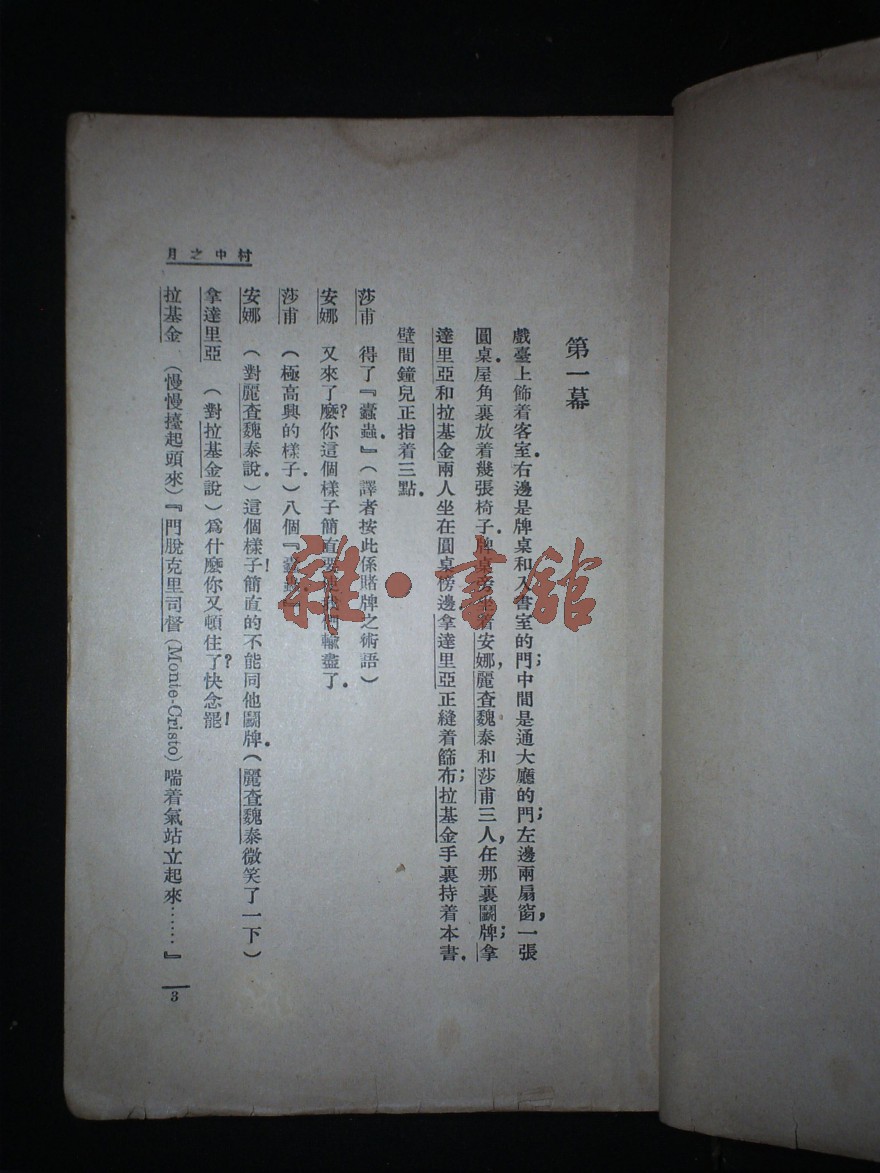 村中之月
第一幕
戲臺上飾着客室．右邊是牌桌和入書室的門；中間是通大廳的門；左邊兩扇窗，一張
圓桌．屋角裏放着幾張椅子．牌桌旁坐着安娜，麗查魏泰和莎甫三人，在那裏鬬牌；拿
達里亞和拉基金兩人坐在圓桌傍邊．拿達里亞正縫着篩布；拉基金手裏持着本書．
壁間鐘兒正指着三點．
莎甫　得了『蠹蟲．』（譯者按此係賭牌之術語）
安娜　又來了麽？你這個樣子簡直要使我們輸盡了．
莎甫　（極高興的樣子．）八個『蠹蟲』
安娜　（對麗查魏泰說．）這個樣子！簡直的不能同他鬬牌．（麗查魏泰微笑了一下）
拿達里亞　（對拉基金說）爲什麽你又頓住了？快念罷！
拉基金　（慢慢擡起頭來）『門脫克里司督(Monte-Cristo)喘着氣站立起來……』
3
雜·書館